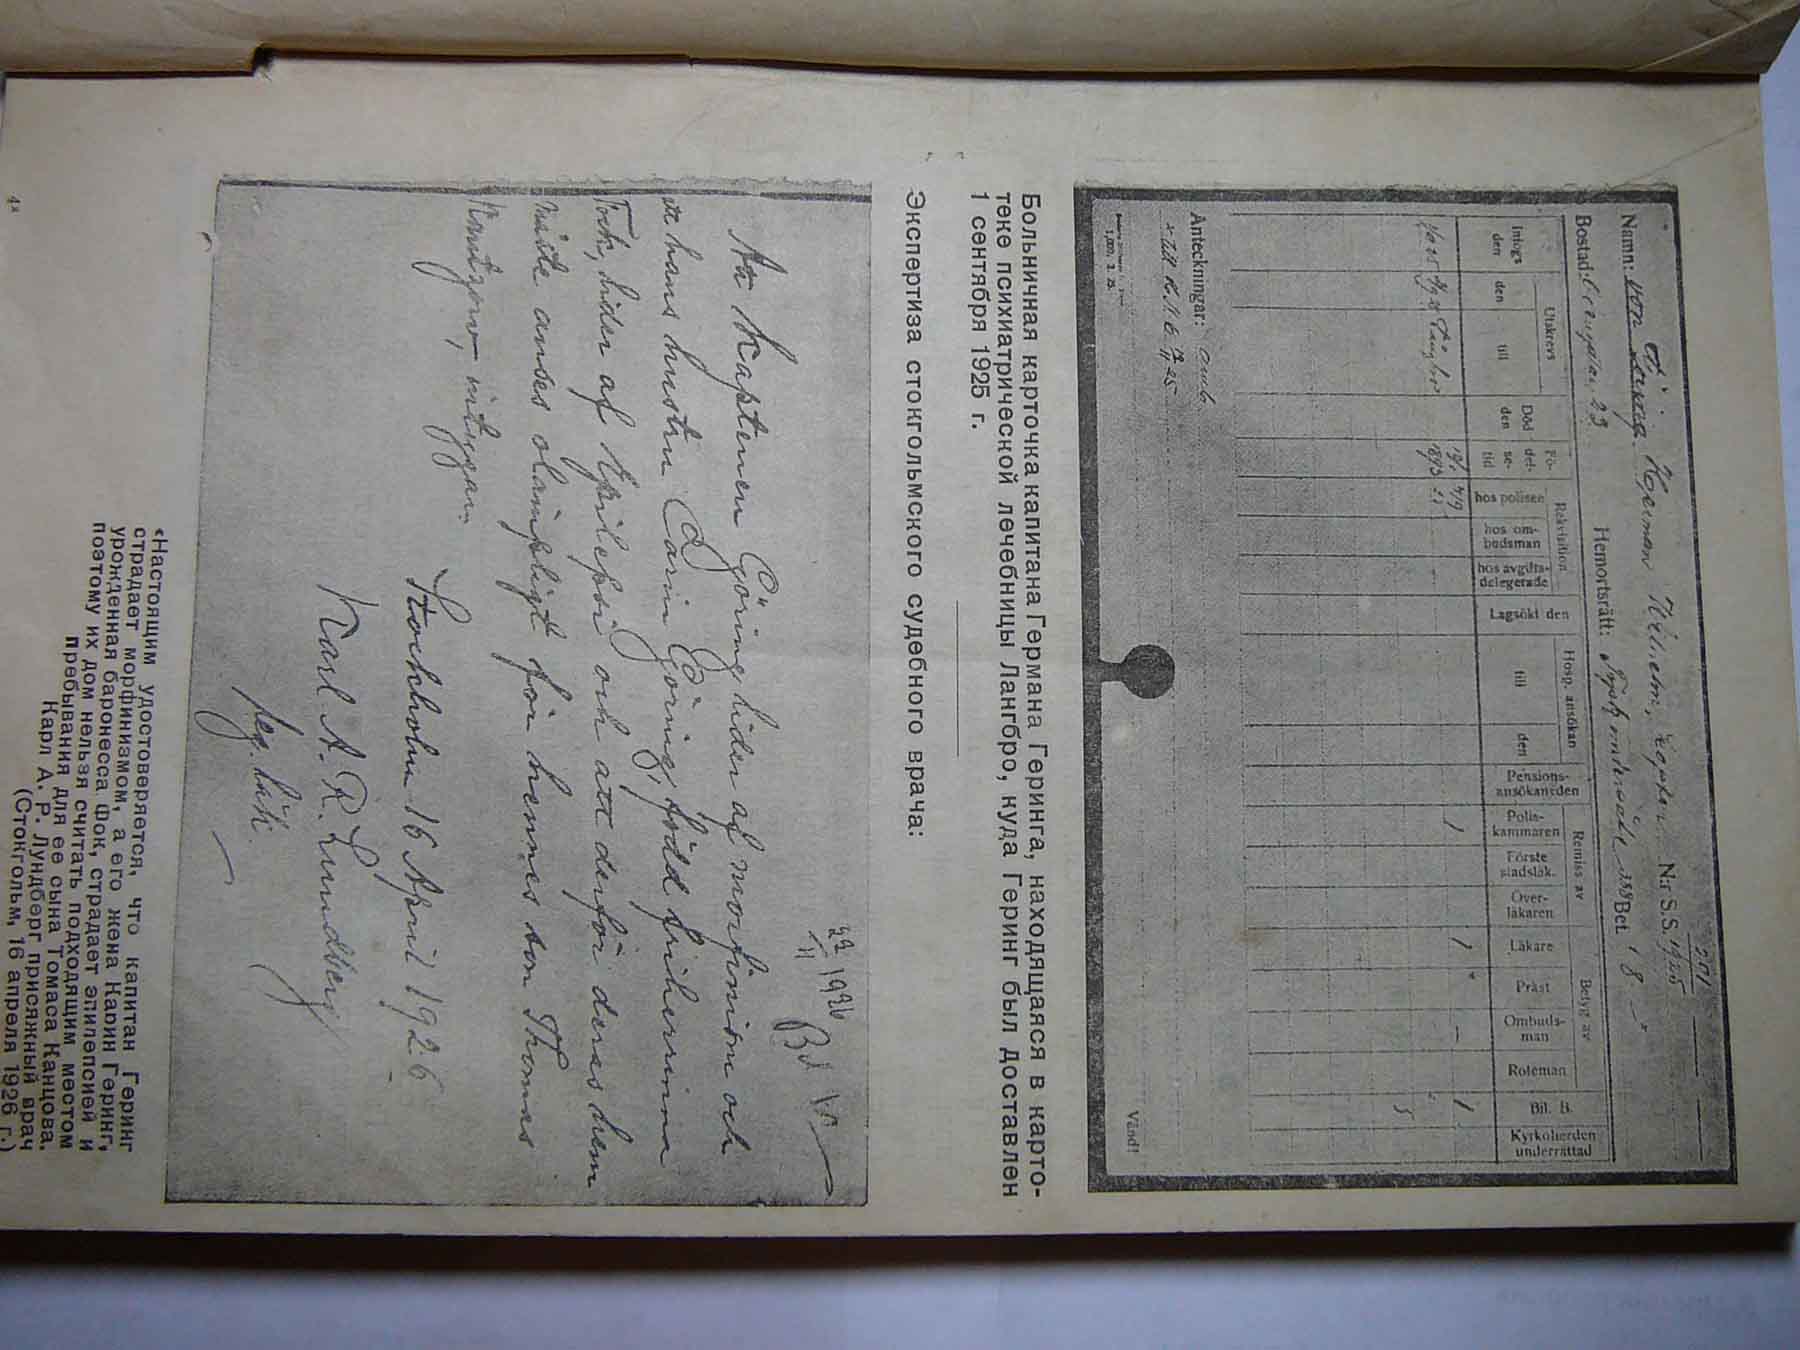 201
Namn: von Göring Herman Wilhelm, kapten Nr S.S. 1925
Bostad: 23 Hemortsrätt: Bet. 18
Intogs den
Utskrevs
den
till
Död den
Fö-
del-
se-
tid
Rekvisition
hos polisen
hos om-
budsman
hos avgifts-
delegerade
Lagsökt den
Hosp. ansökan
till
den
Pensions-
ansökan den
Remiss av
Polis-
kammaren
Förste
stadsläk.
Över-
läkaren
Betyg av
Läkare
Präst
Ombuds-
man
Roteman
Bil. B.
Kyrkoherden
underrättad
Långbro
1893
Anteckningar:
Vänd!
Больничная карточка капитана Германа Геринга, находящаяся в карто-
теке психиатрической лечебницы Лангбро, куда Геринг был доставлен
1 сентября 1925 г.
Экспертиза стокгольмского судебного врача:
1926
Att Kaptenen Göring lider af morfinism och
att hans hustru Carin Göring, född friherrinna
Fock, lider af Epilepsi och att derför deras hem
måste anses olämpligt för hennes son Thomas
Kantzow, intygar.
Stockholm 16 April 1926
Karl A. R. Lundberg
leg. läk.
«Настоящим удостоверяется, что капитан Геринг
страдает морфинизмом, а его жена Карин Геринг,
урожденная баронесса Фок, страдает эпилепсией и
поэтому их дом нельзя считать подходящим местом
пребывания для ее сына Томаса Канцова.
Карл А. Р. Лундберг присяжный врач
(Стокгольм, 16 апреля 1926 г.)
4*